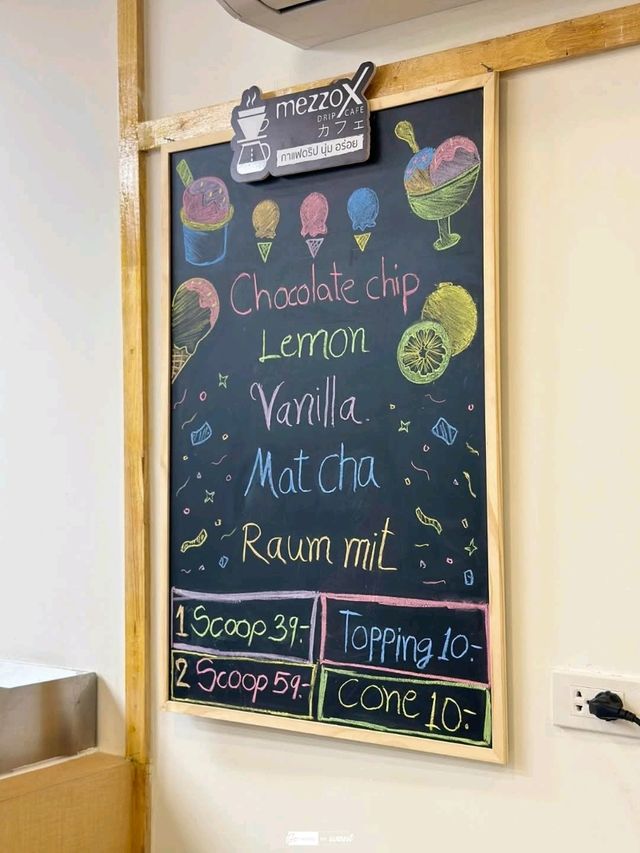 mezzoX
DRIP CAFE
カフェ
กาแฟดริป นุ่ม อร่อย
Chocolate chip
Lemon
Vanilla
Matcha
Raum mit
1 Scoop 39.-
Topping 10.-
2 Scoop 59.-
Cone 10.-